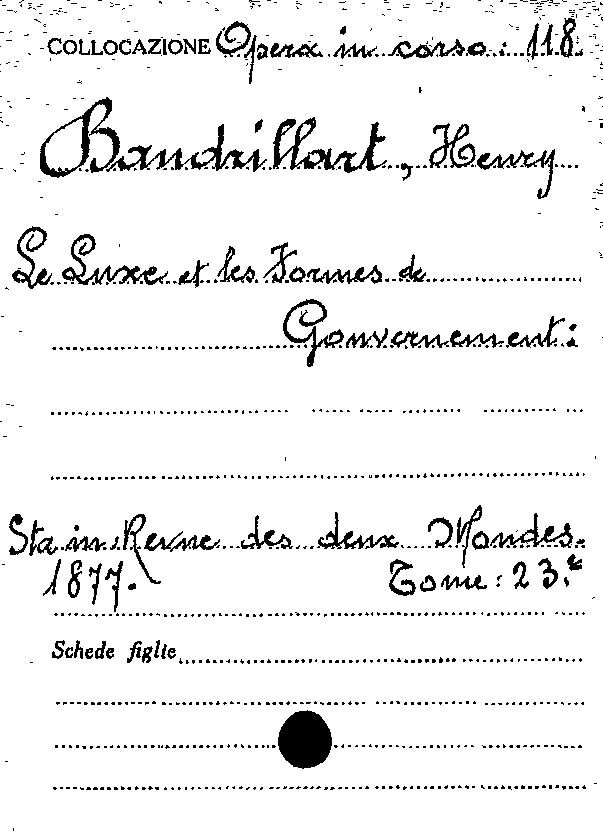 COLLOCAZIONE Opera in corso: 118.
Baudrillart, Henry
Le Luxe et les Formes de
Gouvernement:
Sta in Revue des deux Mondes.
1877. Tome: 23.e
Schede figlie